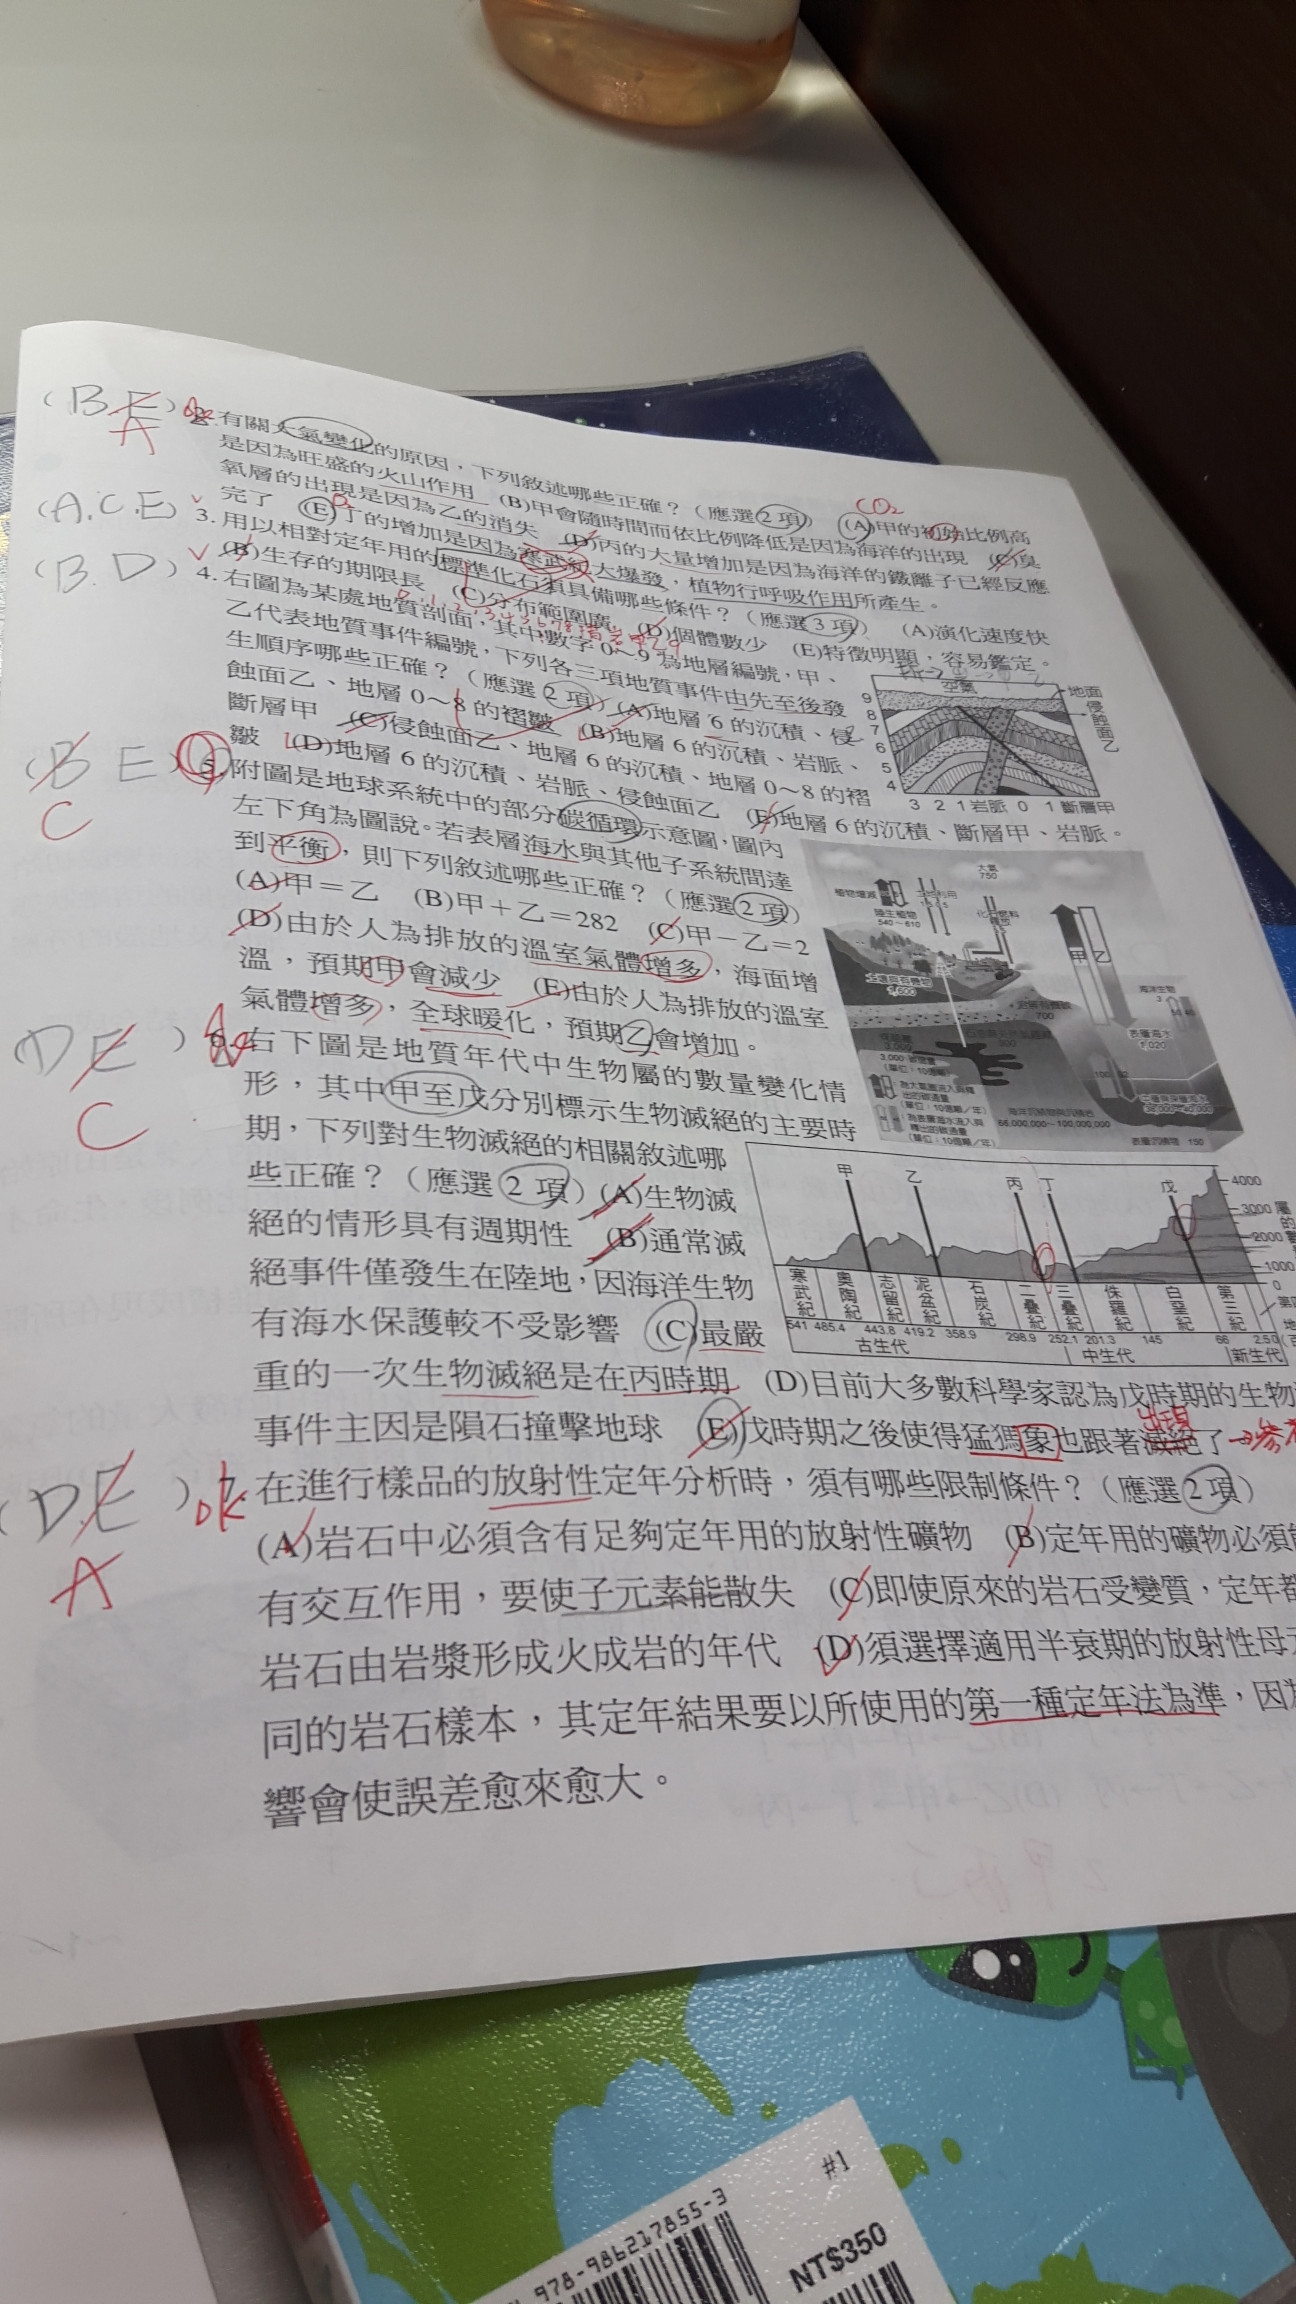 (B E) A 2.有關大氣變化的原因，下列敘述哪些正確？（應選2項） (A)甲的初始比例高
CO2
是因為旺盛的火山作用 (B)甲會隨時間而依比例降低是因為海洋的出現 (C)臭
氧層的出現是因為乙的消失 (D)丙的大量增加是因為海洋的鐵離子已經反應
完了 (E)丁的增加是因為寒武紀大爆發，植物行呼吸作用所產生。
(A.C.E) 3.用以相對定年用的標準化石須具備哪些條件？（應選3項） (A)演化速度快
(B)生存的期限長 (C)分布範圍廣 (D)個體數少 (E)特徵明顯，容易鑑定。
(B.D) 4.右圖為某處地質剖面，其中數字0～9為地層編號，甲、
乙代表地質事件編號，下列各三項地質事件由先至後發
生順序哪些正確？（應選2項） (A)地層6的沉積、侵
蝕面乙、地層0～8的褶皺 (B)地層6的沉積、岩脈、
斷層甲 (C)侵蝕面乙、地層6的沉積、地層0～8的褶
皺 (D)地層6的沉積、岩脈、侵蝕面乙 (E)地層6的沉積、斷層甲、岩脈。
空氣
地面
侵蝕面乙
9
8
7
6
5
4
3 2 1 岩脈 0 1 斷層甲
(B E) C 5.附圖是地球系統中的部分碳循環示意圖，圖內
左下角為圖說。若表層海水與其他子系統間達
到平衡，則下列敘述哪些正確？（應選2項）
(A)甲＝乙 (B)甲＋乙＝282 (C)甲－乙＝2
(D)由於人為排放的溫室氣體增多，海面增
溫，預期甲會減少 (E)由於人為排放的溫室
氣體增多，全球暖化，預期乙會增加。
大氣
750
陸生植物
540～610
土壤與有機物
1,600
700
甲 乙
海洋生物
3
50 40
表層海水
1,020
100
3,000
（單位：10億噸）
（單位：10億噸／年）
（單位：10億噸／年）
66,000,000～100,000,000
表層沉積物 150
(D E) C 右下圖是地質年代中生物屬的數量變化情
形，其中甲至戊分別標示生物滅絕的主要時
期，下列對生物滅絕的相關敘述哪
些正確？（應選2項） (A)生物滅
絕的情形具有週期性 (B)通常滅
絕事件僅發生在陸地，因海洋生物
有海水保護較不受影響 (C)最嚴
重的一次生物滅絕是在丙時期 (D)目前大多數科學家認為戊時期的生物
事件主因是隕石撞擊地球 (E)戊時期之後使得猛獁象也跟著滅絕了
出現
甲 乙 丙 丁 戊
4000
3000
2000
1000
0
寒武紀 奧陶紀 志留紀 泥盆紀 石炭紀 二疊紀 三疊紀 侏羅紀 白堊紀 第三紀
541 485.4 443.8 419.2 358.9 298.9 252.1 201.3 145 66 2.5 0
古生代 中生代 新生代
(D.E) A ok 在進行樣品的放射性定年分析時，須有哪些限制條件？（應選2項）
(A)岩石中必須含有足夠定年用的放射性礦物 (B)定年用的礦物必須
有交互作用，要使子元素能散失 (C)即使原來的岩石受變質，定年
岩石由岩漿形成火成岩的年代 (D)須選擇適用半衰期的放射性母
同的岩石樣本，其定年結果要以所使用的第一種定年法為準，因
響會使誤差愈來愈大。
#1
978-986217855-3
NT$350